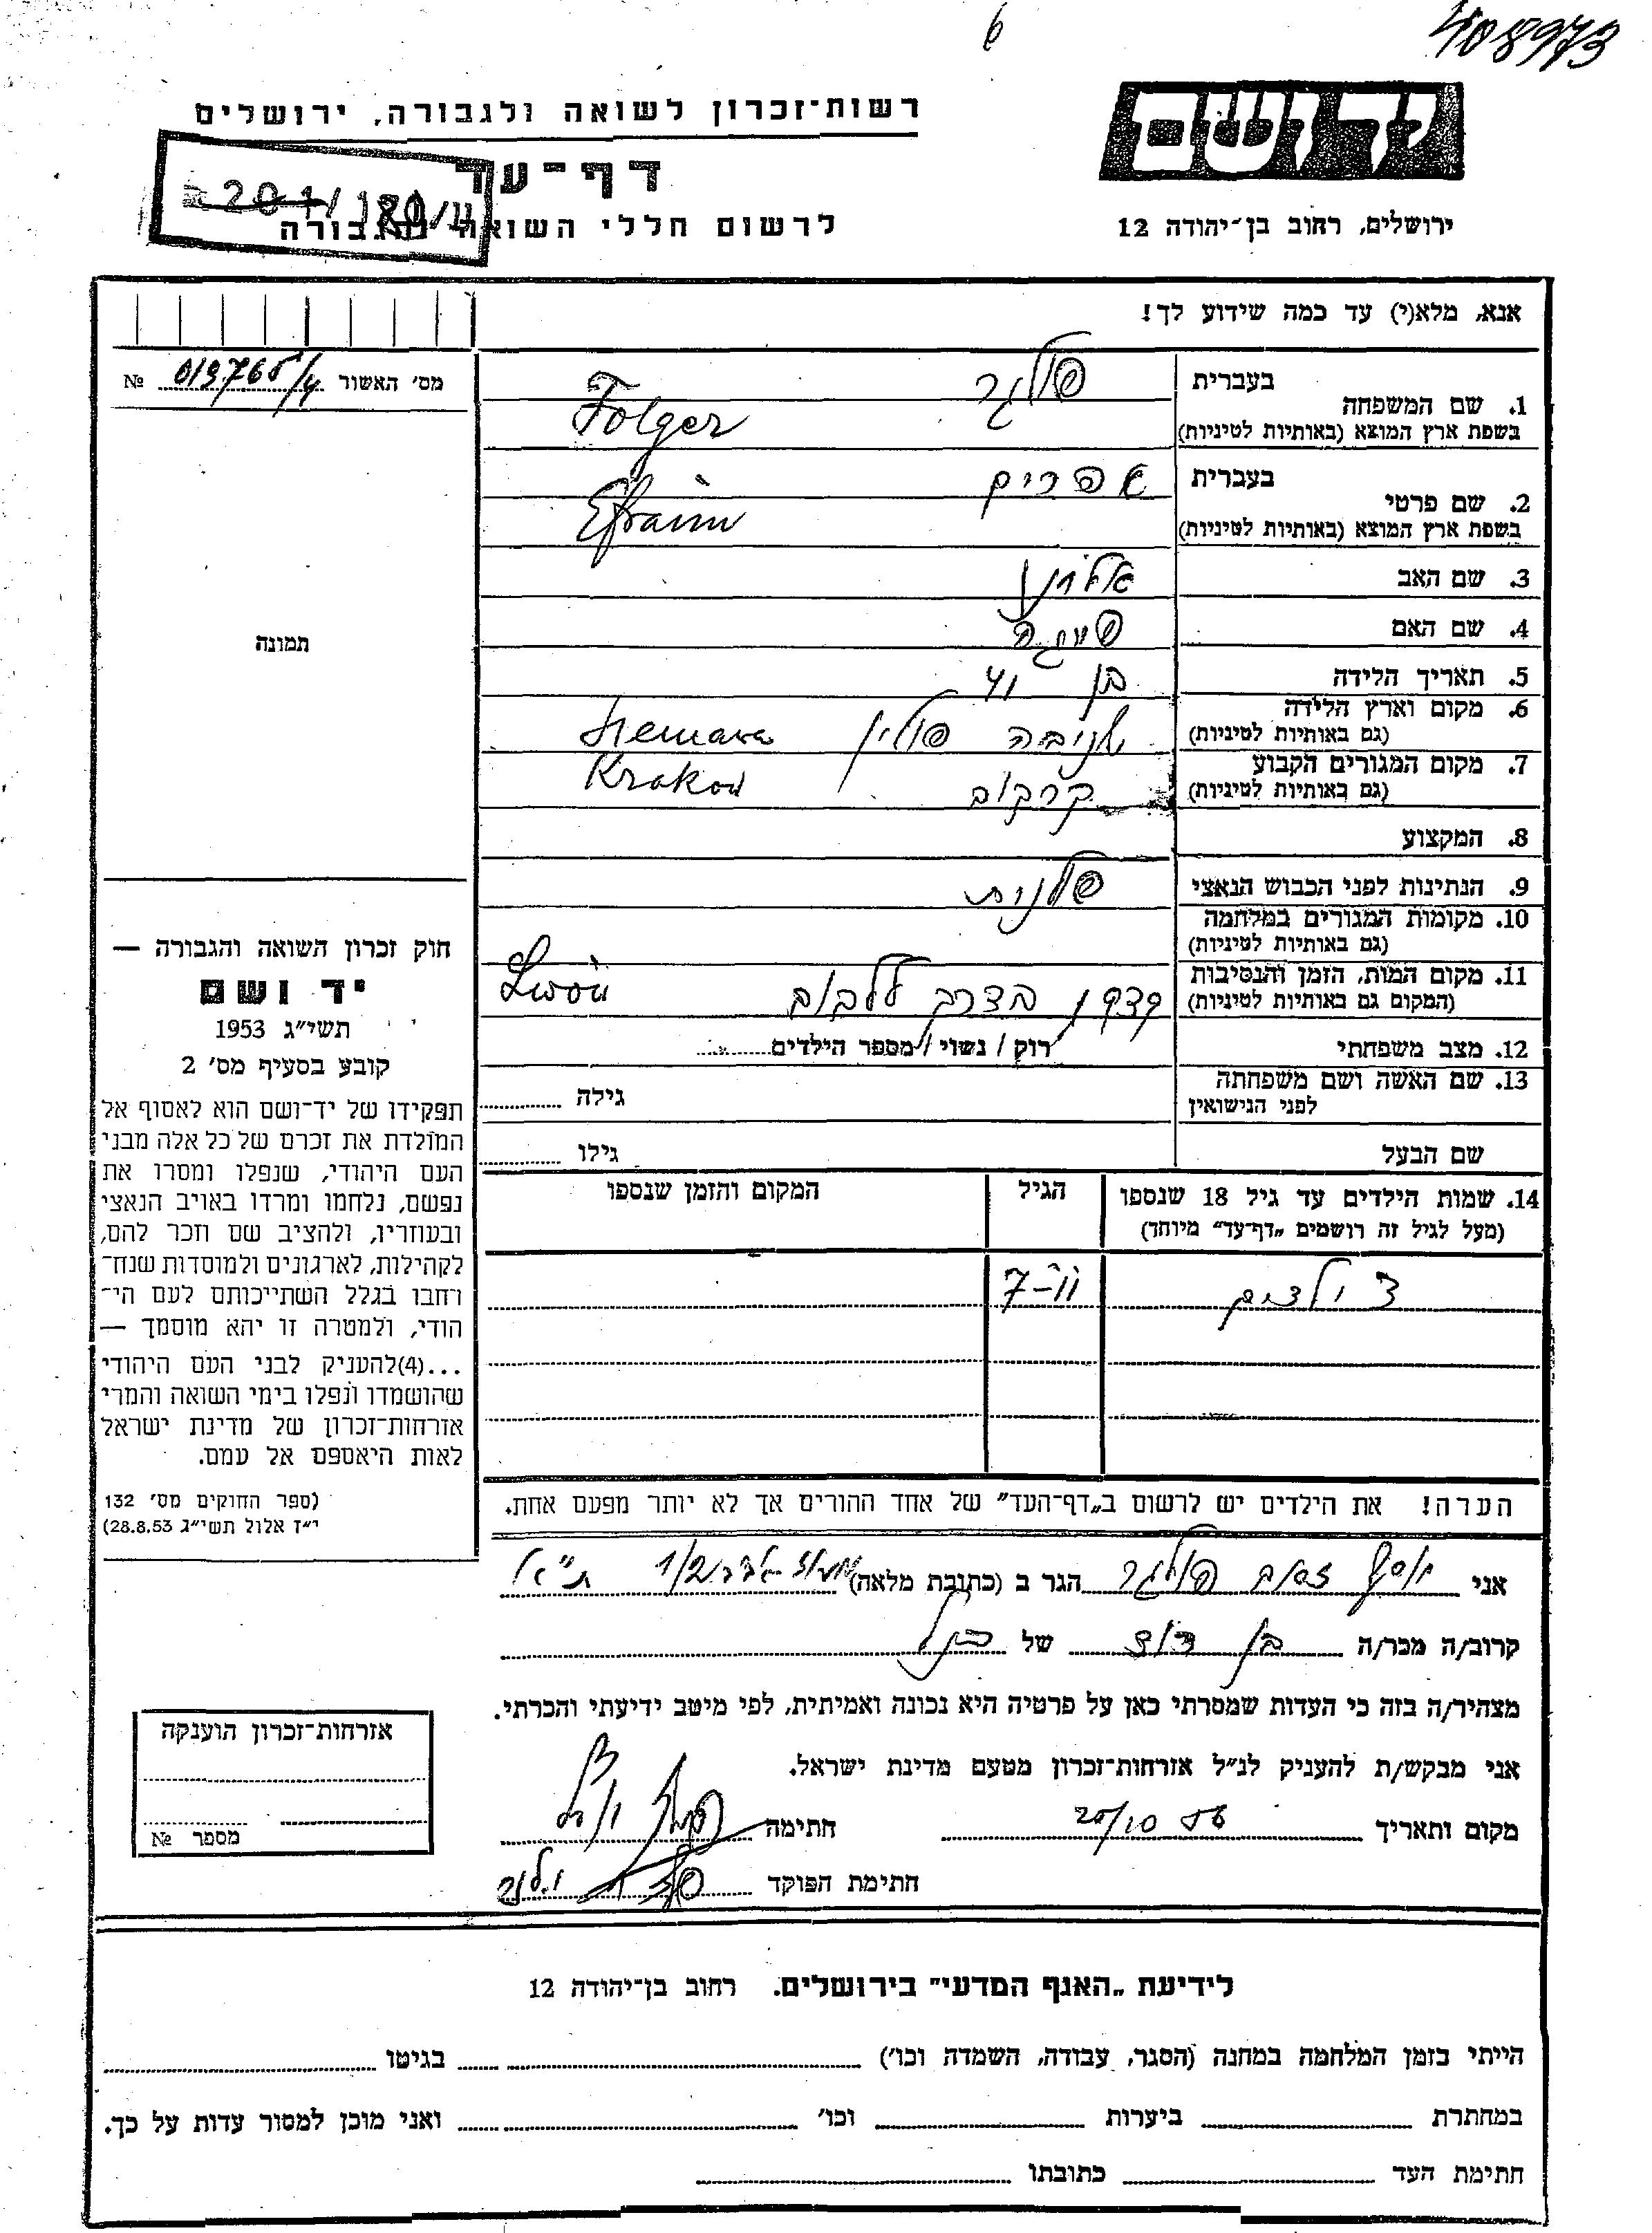 408973
6
יד ושם
רשות-זכרון לשואה ולגבורה, ירושלים
דף-עד
לרשום חללי השואה והגבורה
ירושלים, רחוב בן-יהודה 12
אנא, מלא(י) עד כמה שידוע לך!
מס׳ האשור 019765/4 №
בעברית פולגר
1. שם המשפחה
בשפת ארץ המוצא (באותיות לטיניות) Folger
בעברית אפרים
2. שם פרטי
בשפת ארץ המוצא (באותיות לטיניות) Efraim
3. שם האב
4. שם האם
5. תאריך הלידה בן 41
6. מקום וארץ הלידה
(גם באותיות לטיניות) פולין
7. מקום המגורים הקבוע
(גם באותיות לטיניות) קרקוב Krakow
8. המקצוע
9. הנתינות לפני הכבוש הנאצי פולנית
10. מקומות המגורים במלחמה
(גם באותיות לטיניות)
11. מקום המות, הזמן והנסיבות
(המקום גם באותיות לטיניות) בדרך ללבוב Lwów
12. מצב משפחתי רוק / נשוי / מספר הילדים
13. שם האשה ושם משפחתה
לפני הנישואין גילה
שם הבעל גילו
14. שמות הילדים עד גיל 18 שנספו
(מעל לגיל זה רושמים „דף-עד" מיוחד)
הגיל
המקום והזמן שנספו
ילדים 7-11
הערה! את הילדים יש לרשום ב„דף-העד" של אחד ההורים אך לא יותר מפעם אחת.
תמונה
חוק זכרון השואה והגבורה —
יד ושם
תשי״ג 1953
קובע בסעיף מס׳ 2
תפקידו של יד-ושם הוא לאסוף אל
המולדת את זכרם של כל אלה מבני
העם היהודי, שנפלו ומסרו את
נפשם, נלחמו ומרדו באויב הנאצי
ובעוזריו, ולהציב שם וזכר להם,
לקהילות, לארגונים ולמוסדות שנח-
רחבו בגלל השתייכותם לעם הי-
הודי, ולמטרה זו יהא מוסמך —
...(4) להעניק לבני העם היהודי
שהושמדו ונפלו בימי השואה והמרי
אזרחות-זכרון של מדינת ישראל
לאות היאספם אל עמם.
(ספר החוקים מס׳ 132
י״ז אלול תשי״ג 28.8.53)
אני יוסף זאב פולגר הגר ב (כתובת מלאה) 1/2 ת״א
קרוב/ה מכר/ה בן דוד של הנ״ל
מצהיר/ה בזה כי העדות שמסרתי כאן על פרטיה היא נכונה ואמיתית, לפי מיטב ידיעתי והכרתי.
אני מבקש/ת להעניק לנ״ל אזרחות-זכרון מטעם מדינת ישראל.
מקום ותאריך 25/10 56 חתימה
חתימת הפוקד
אזרחות-זכרון הוענקה
מספר №
לידיעת „האגף המדעי" בירושלים. רחוב בן-יהודה 12
הייתי בזמן המלחמה במחנה (הסגר, עבודה, השמדה וכו׳) בגיטו
במחתרת ביערות וכו׳ ואני מוכן למסור עדות על כך.
חתימת העד כתובתו